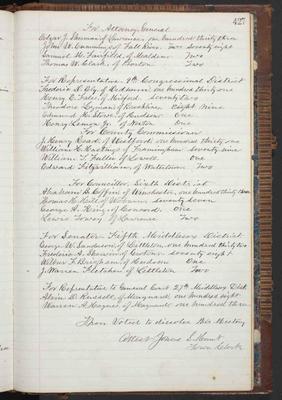 427
For Attorney General
Edgar J. Sherman of Lawrence, one hundred thirty three
John W. Cummings of Fall River. Two seventy eight
Samuel M. Fairfield of Malden Two
Thomas W. Clark, of Boston Two
For Representative 9th Congressional District
Frederic D. Ely of Dedham one hundred thirty one
Henry E. Fales of Milford. seventy two
Theodore Lyman of Brookline, eight nine
Edmund M. Stowe of Hudson One
Henry of Newton One
For County Commissioner
J. Henry Read, of Westford one hundred thirty one
William E. Hastings of Framingham seventy nine
William T. Fuller of Lowell. One
Edward Fitzwilliam, of Watertown Two
For Councillor, Sixth District
Abraham B. Coffin, of Winchester, one hundred thirty three
Thomas H. Hill of Woburn, seventy seven
George A. King, of Concord. One
Lewis of Two
For Senator Fifth Middlesex District
George W. Sanderson of Littleton, one hundred thirty two
Frederic A. of seventy eight
Wilbur F. Brigham of Hudson One
J. Warren Fletcher of Littleton Two
For Representative to General Court 27th Middlesex Dist
Alvin of Maynard, one hundred eight
Warren A. Haynes of Maynard one hundred three
Upon Voted to dissolve the Meeting
Attest Jonas S. Hunt
Town Clerk